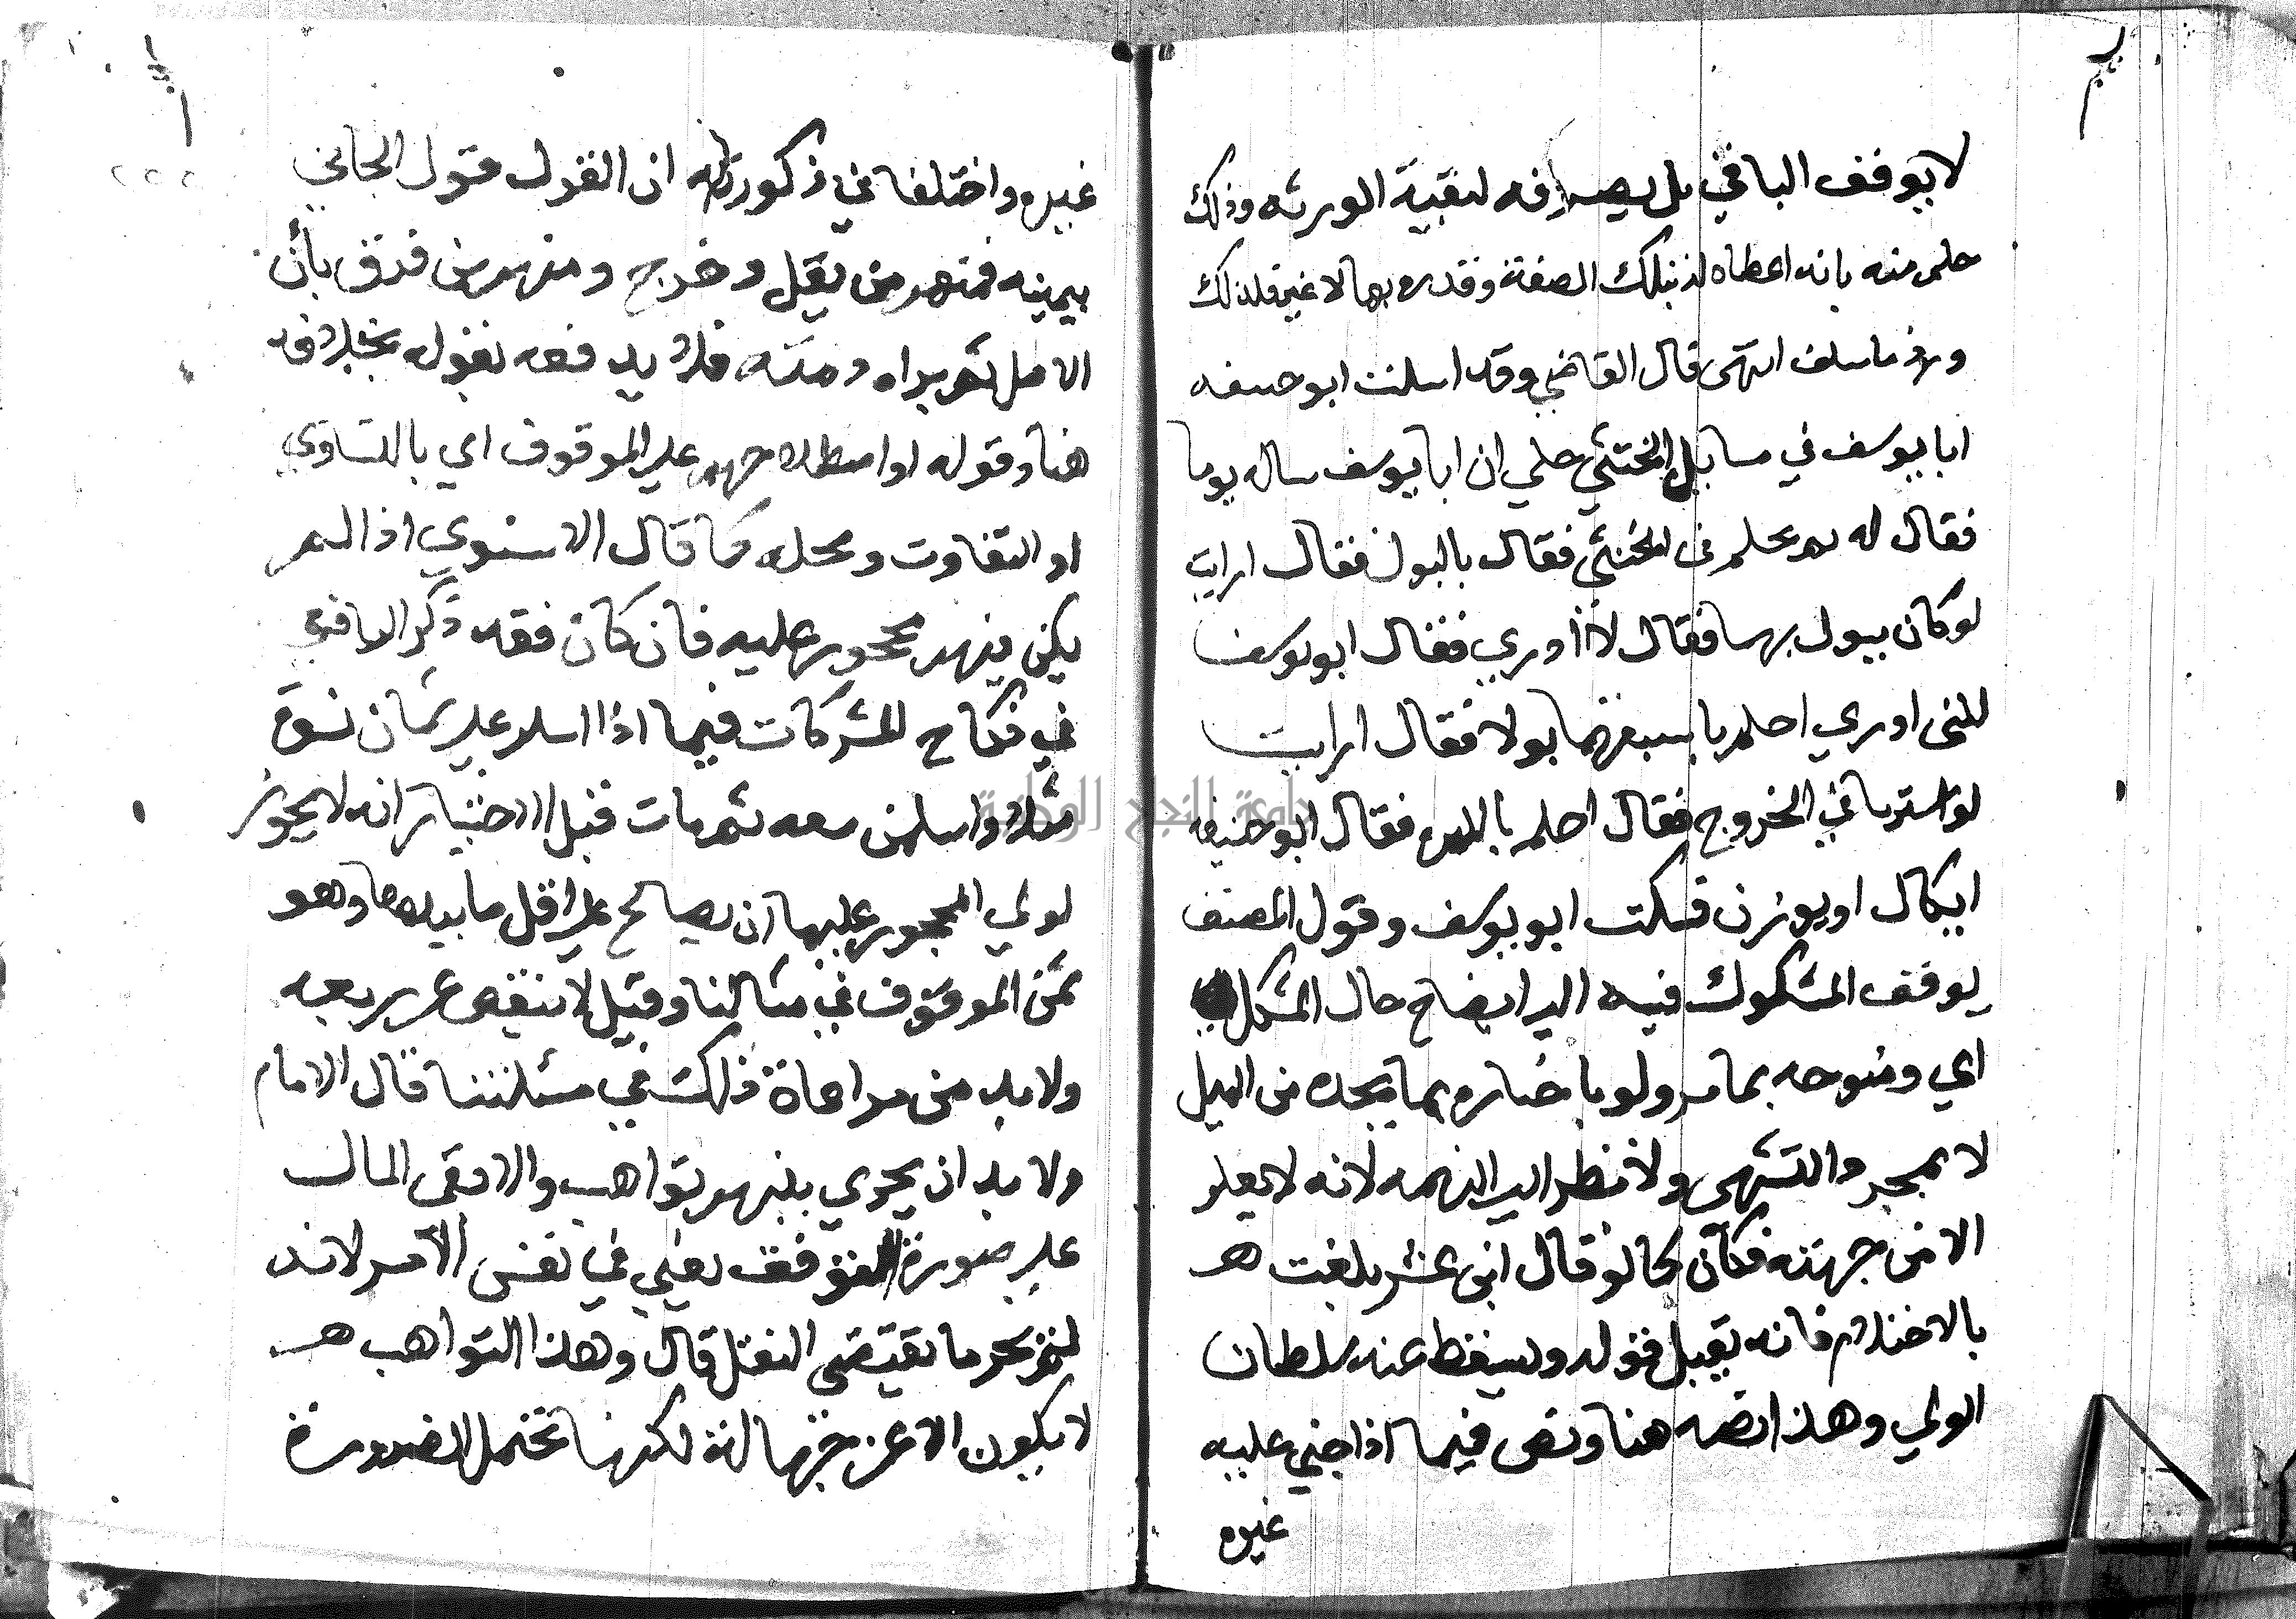 لا يوقف الباقي بل يصرفه لبقية الورثه وذلك
حكم منه بانه اعطاه له بتلك الصفة وقدره بها لا غير فلذلك
ما سلف انتهى قال القاضي وقد ابو حنيفه
ابا يوسف في مسايل الخنثي حكي ان ابا يوسف ساله يوما
فقال له بم يحكم في الخنثي فقال بالبول فقال ارايت
لو كان يبول بهما فقال لا ادري فقال ابو يوسف
لكني اوري احكم باسبقهما بولا فقال ارايت
لو استويا في الخروج فقال احكم فقال ابو حنيفه
ايكال او يوزن فسكت ابو يوسف وقول المصنف
يوقف المشكوك فيه الي ايضاح حال المشكل
اي ومنوحه بما مر ولو باخباره بما يجده من الميل
لا بمجرد التشهي ولا نظر الي التهمه لانه لا يعلم
الا من جهته فكان كما لو قال ابن عشر بلغت
بالاحتلام فانه يقبل قوله ويسقط عنه سلطان
الولي وهذا نصه هنا ونص فيما اذا جني عليه
غيره
غيره واختلفا في ذكورته ان القول قول الجاني
بيمينه فمنهم من نقل وخرج ومنهم من فرق بأن
الاصل ثم براه ذمته فلا يدفعه بقوله بخلافه
هنا وقوله او اصطلاحهم علي الموقوف اي بالتساوي
او التفاوت ومحله كما قال الاسنوي اذا لم
يكن فيهم محجور عليه فان كان فقد ذكر الرافعي
في نكاح المشركات فيما اذا اسلم علي ثمان نسوة
مثلا واسلمن معه ثم مات قبل الاختيار انه لا يجوز
لولي المحجور عليها ان يصالح علي اقل ما بيدها وهو
ثمن الموقوف في مثالنا وقيل لا ينقص عن ربعه
ولا بد من مراعاة ذلك في مسئلتنا قال الامام
ولا بد ان يجري بينهم تواهب والا بقي المال
علي صورة التوقف يعني في نفس الامر لانه
لم يجر ما يقتضي النقل قال وهذا التواهب
لا يكون الا عن جهالة لكنها تحتمل للضرورة